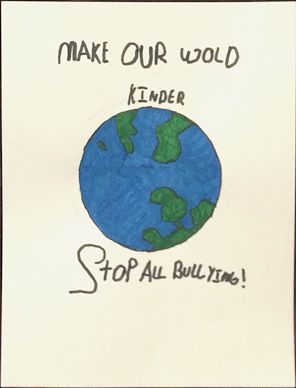 MAKE OUR WOLD
KINDER
STOP ALL BULLYING!